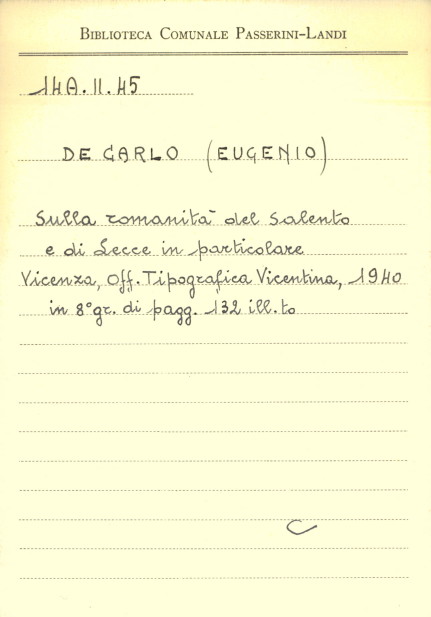 BIBLIOTECA COMUNALE PASSERINI-LANDI
14A.II.45
DE CARLO (EUGENIO)
Sulla romanità del Salento
e di Lecce in particolare
Vicenza, Off. Tipografica Vicentina, 1940
in 8° gr. di pagg. 132 ill.to
C